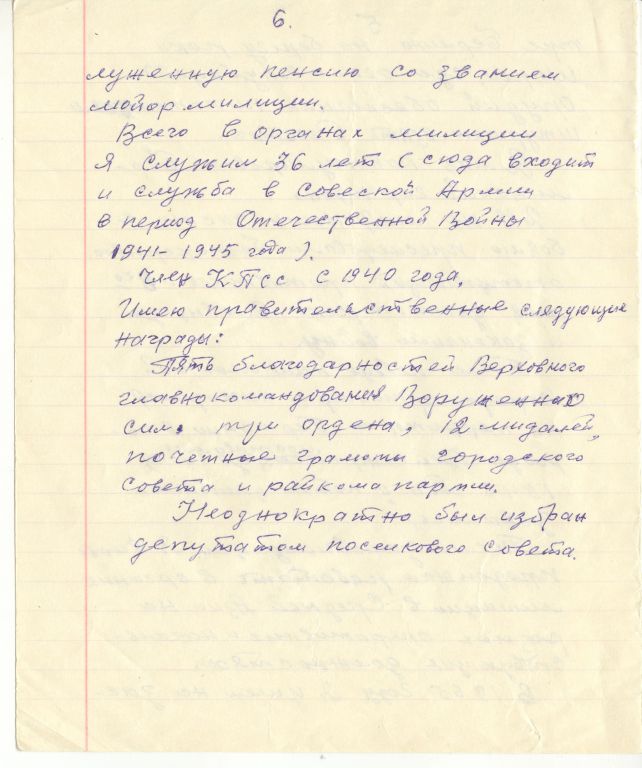 6.
луженную пенсию со званием
майор милиции.
Всего в органах милиции
я служил 36 лет (сюда входит
и служба в Совеской Армии
в период Отечественной Войны
1941-1945 года).
Член КПСС с 1940 года.
Имею правительственные следующие
награды:
Пять благодарностей Верховного
главнокомандования Воруженных
сил, три ордена, 12 мидалей,
почётные грамоты городского
совета и райкома партии.
Неоднократно был избран
депутатом поселкового совета.